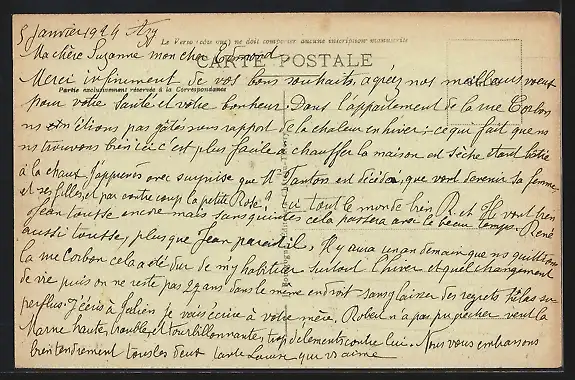 5 Janvier 1924 Azy
Le Verso (côté vue) ne doit comporter aucune inscription manuscrite
Ma chère Suzanne mon cher Edmond
CARTE POSTALE
Merci infiniment de vos bons souhaits, agréez nos meilleurs voeux
Partie exclusivement réservée à la Correspondance
pour votre Santé et votre bonheur. Dans l'appartement de la rue Corbon
ns n'étions pas gâtés sous rapport de la chaleur en hiver; ce qui fait que ns
ns trouvons bien ici c'est plus facile à chauffer la maison est sèche étant bâtie
à la chaux J'apprends avec surprise que Mr Tanton est décédé, que vont devenir sa femme,
et ses filles, et par contre coup la petite Rose? ici tout le monde bien R. et H. vont bien
Jean tousse encore mais sans quintes cela passera avec le beau temps. René
aussi tousse, plus que Jean paraît-il, Il y aura un an demain que ns quittions
la rue Corbon cela a été dur de m'y habituer surtout l'hiver et quel changement
de vie puis on ne reste pas 29 ans dans le même endroit sans y laisser des regrets hélas
perflus. J'écris à Julien je vais écrire à votre mère, Robert n'a pas pu pêcher vu la
Marne haute, trouble, et tourbillonnante, trop d'éléments contre lui. Nous vous embrassons
bien tendrement tous les deux tante Laure qui vs aime